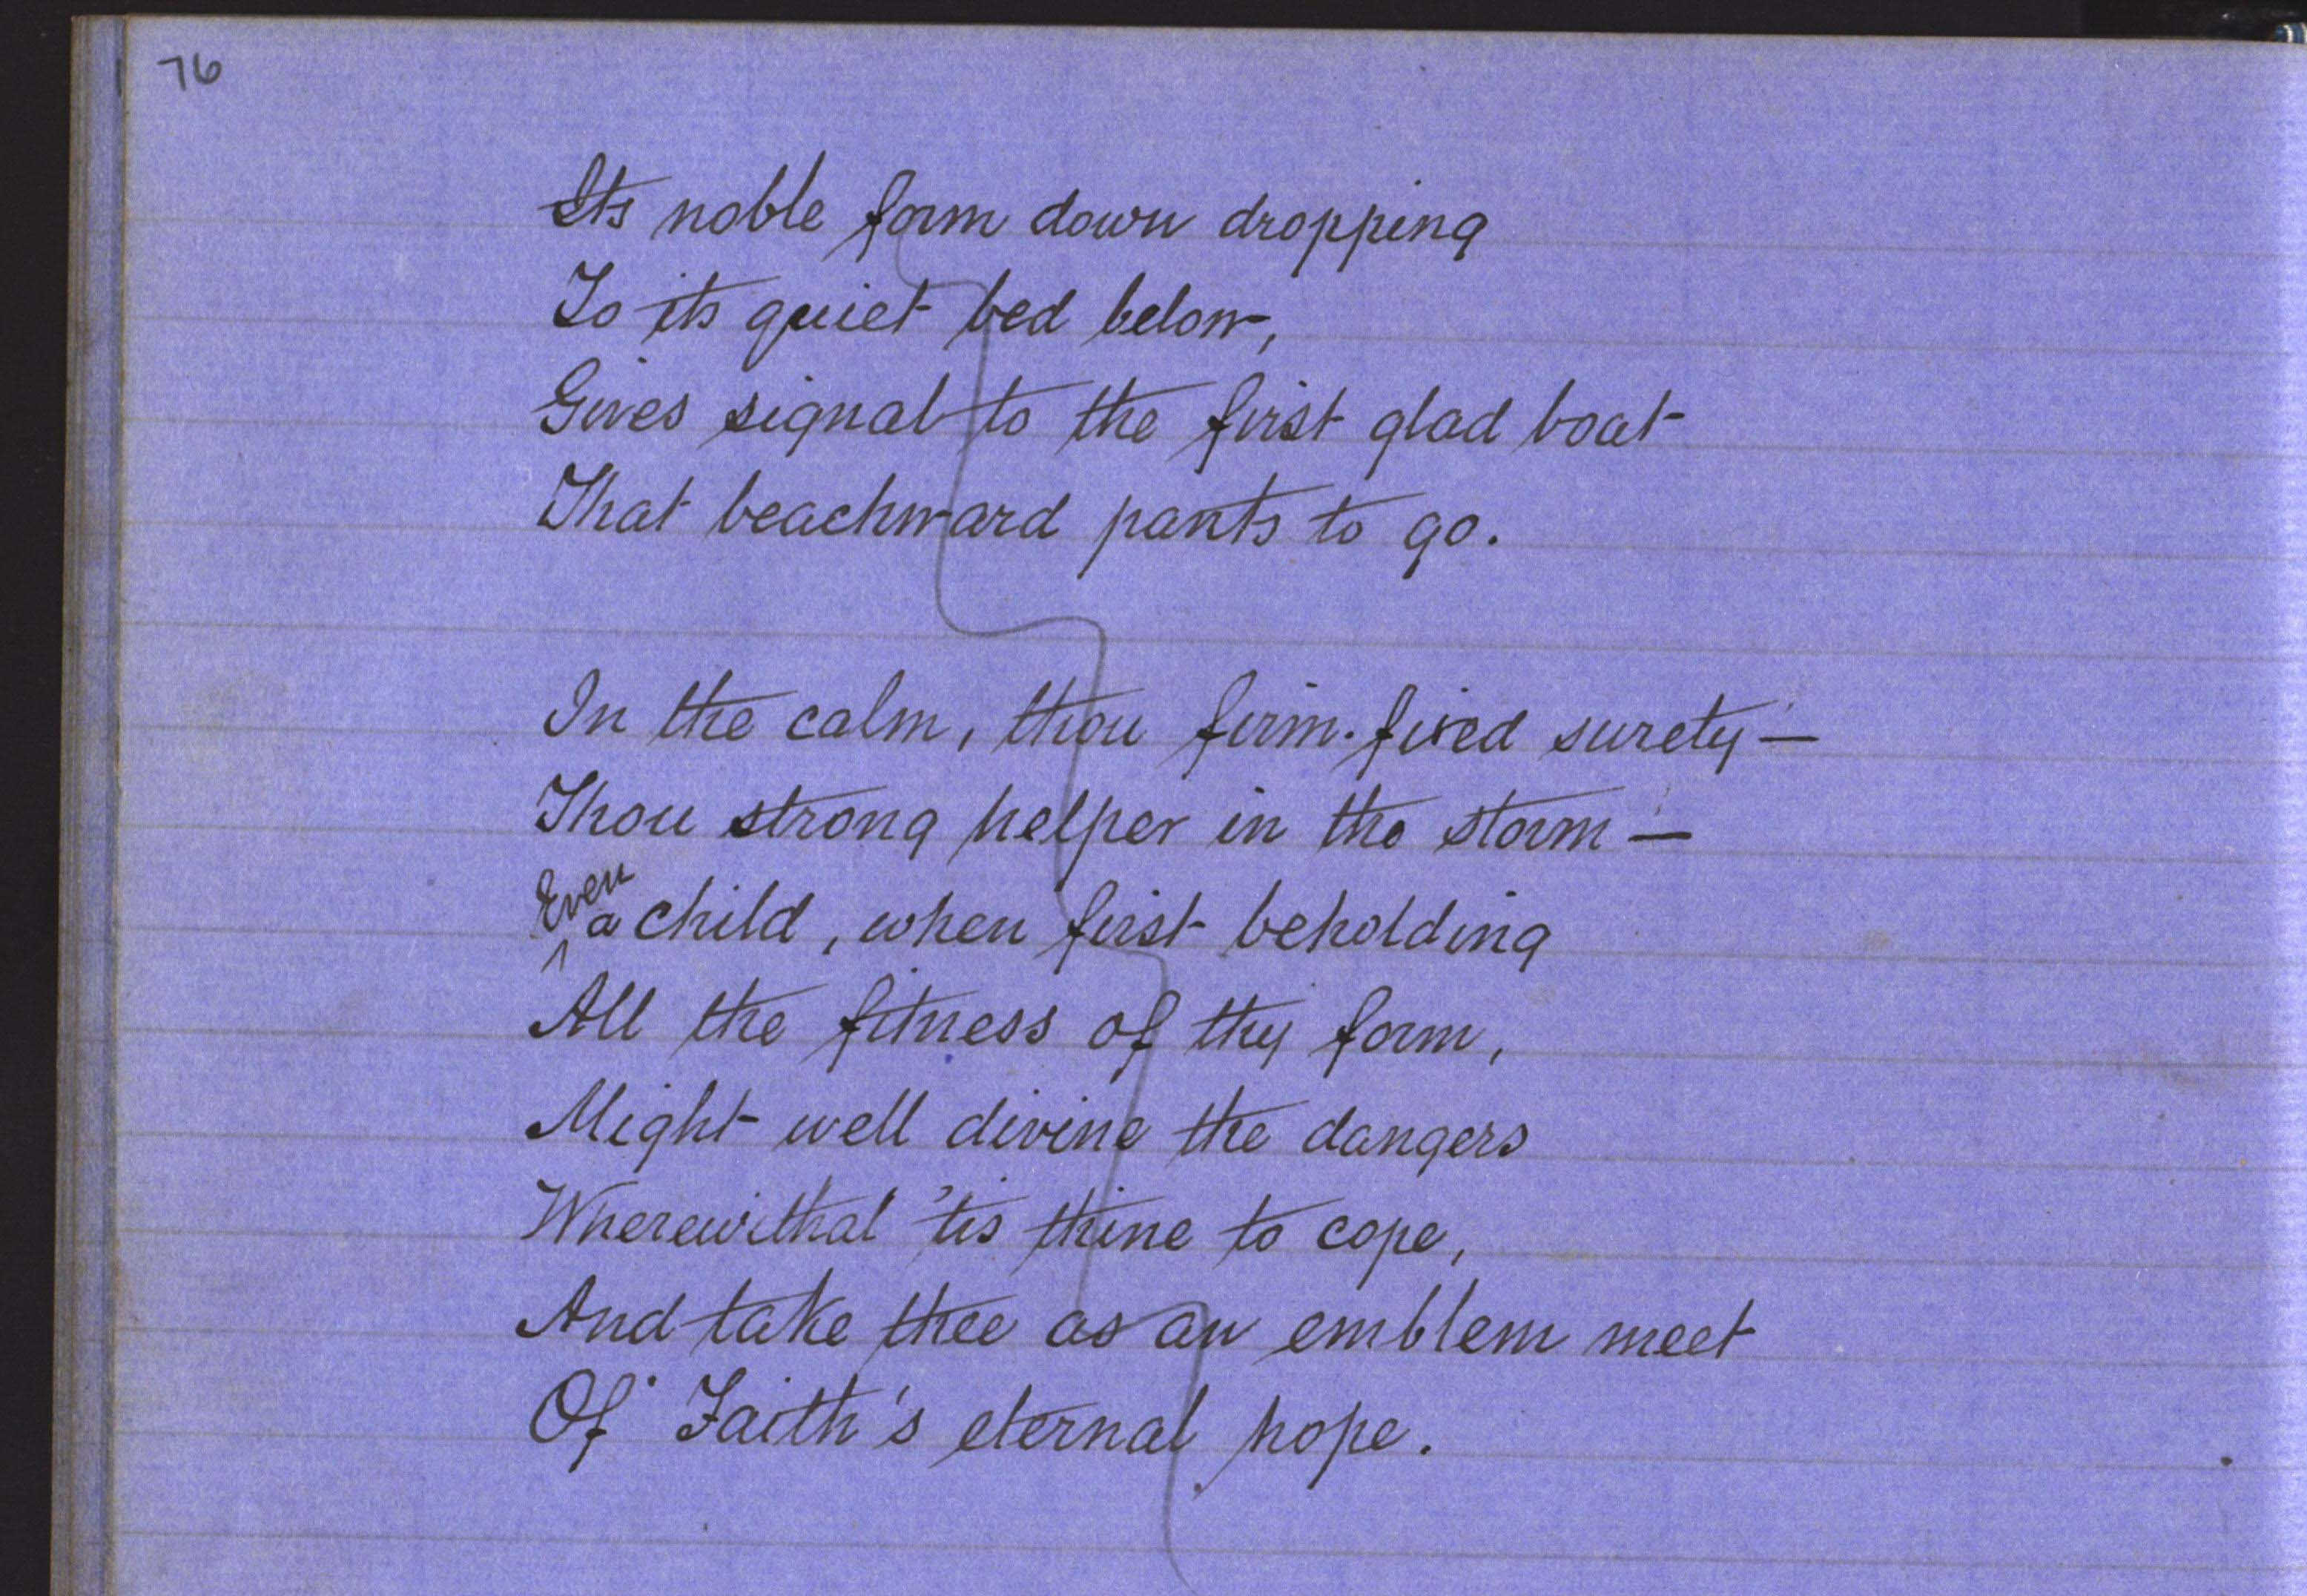 76
Its noble form down dropping
To its quiet bed below,
Gives signal to the first glad boat
That beachward pants to go.
In the calm, thou firm-fixed surety —
Thou strong helper in the storm —
Even a child, when first beholding
All the fitness of thy form,
Might well divine the dangers
Wherewithal 'tis thine to cope,
And take thee as an emblem meet
Of Faith's eternal hope.